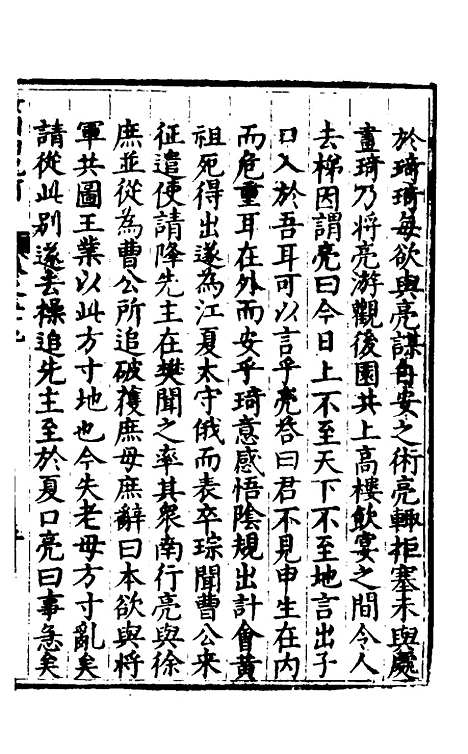 於琦琦每欲與亮謀自安之術亮輒拒塞未與處
畫琦乃將亮游觀後園共上高樓飲宴之間令人
去梯因謂亮曰今日上不至天下不至地言出子
口入於吾耳可以言乎亮答曰君不見申生在内
而危重耳在外而安乎琦意感悟陰規出計會黃
祖死得出遂為江夏太守俄而表卒琮聞曹公來
征遣使請降先主在樊聞之率其衆南行亮與徐
庶並從為曹公所追破獲庶母庶辭曰本欲與將
軍共圖王業以此方寸地也今失老母方寸亂矣
請從此别遂去操追先主至於夏口亮曰事急矣